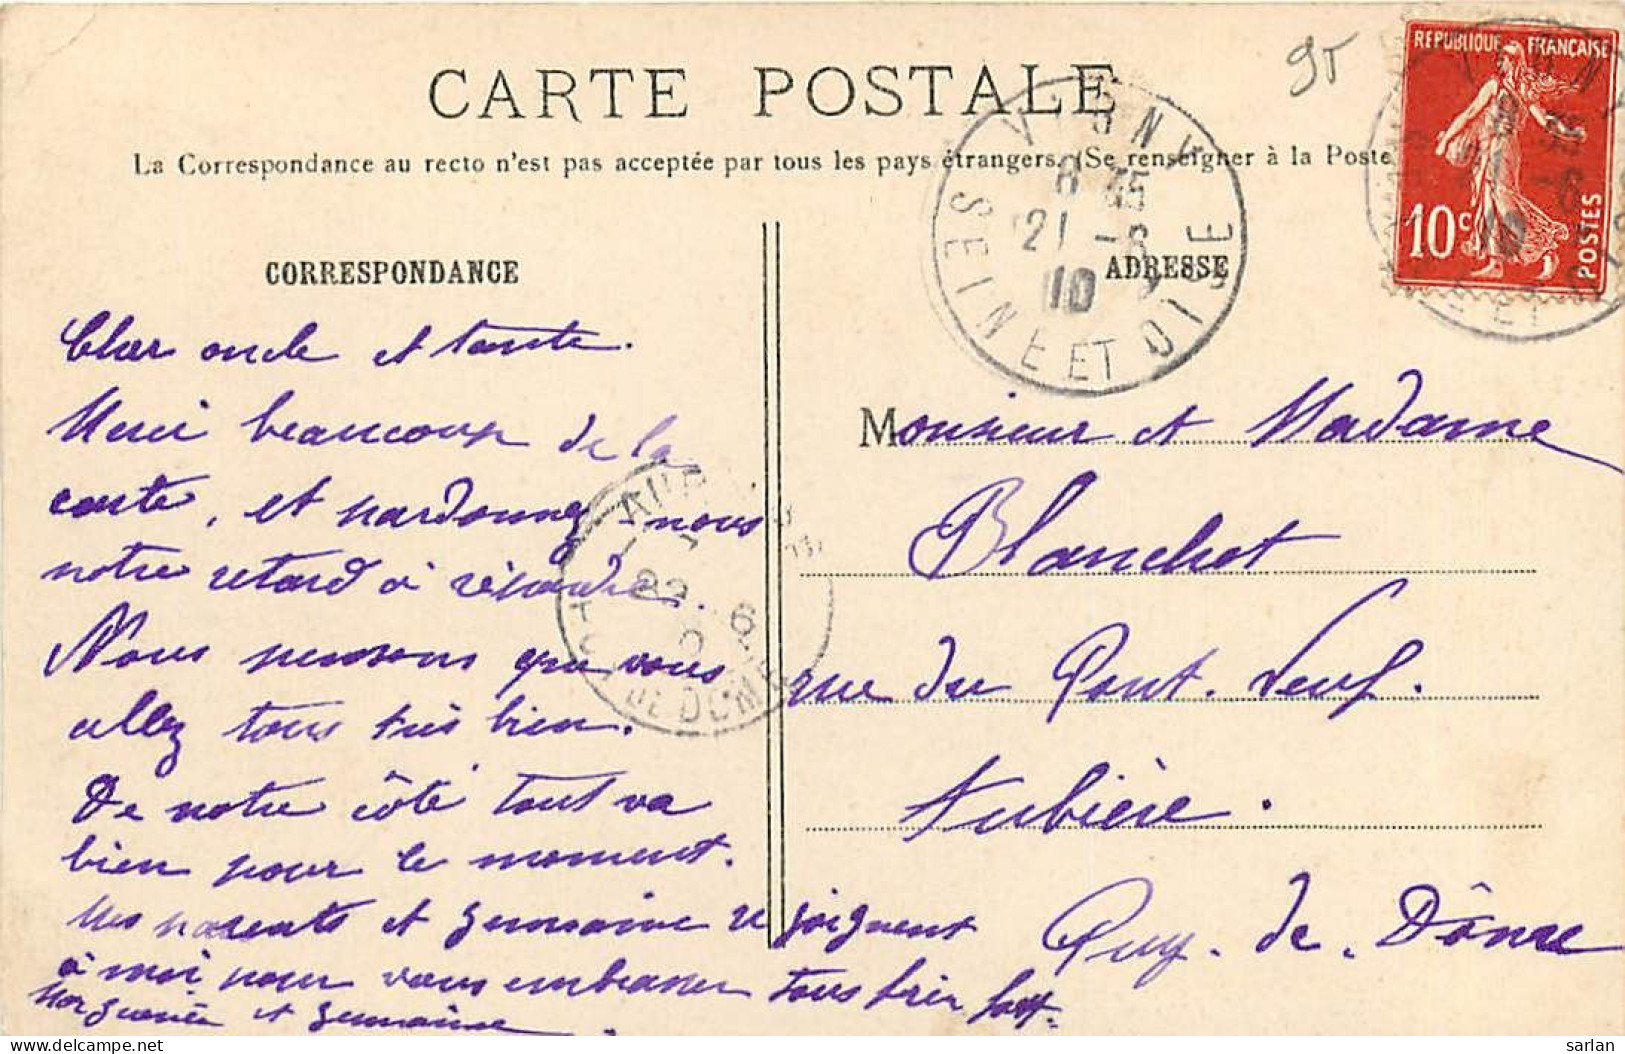 CARTE POSTALE
95
La Correspondance au recto n'est pas acceptée par tous les pays étrangers. (Se renseigner à la Poste
RÉPUBLIQUE FRANÇAISE
10c
POSTES
VIGNY
8 35
21 -6
10
SEINE ET OISE
CORRESPONDANCE
ADRESSE
Cher oncle et tante.
Merci beaucoup de la
carte, et pardonnez-nous
notre retard à répondre.
Nous pensons que vous
allez tous très bien.
De notre côté tout va
bien pour le moment.
Mes parents et Germaine se joignent
à moi pour vous embrasser tous bien fort.
Marguerite et Germaine.
Monsieur et Madame
Blanchot
rue du Pont. Neuf.
Aubière.
Puy. de. Dôme
22 6
DE DOME
sarlan